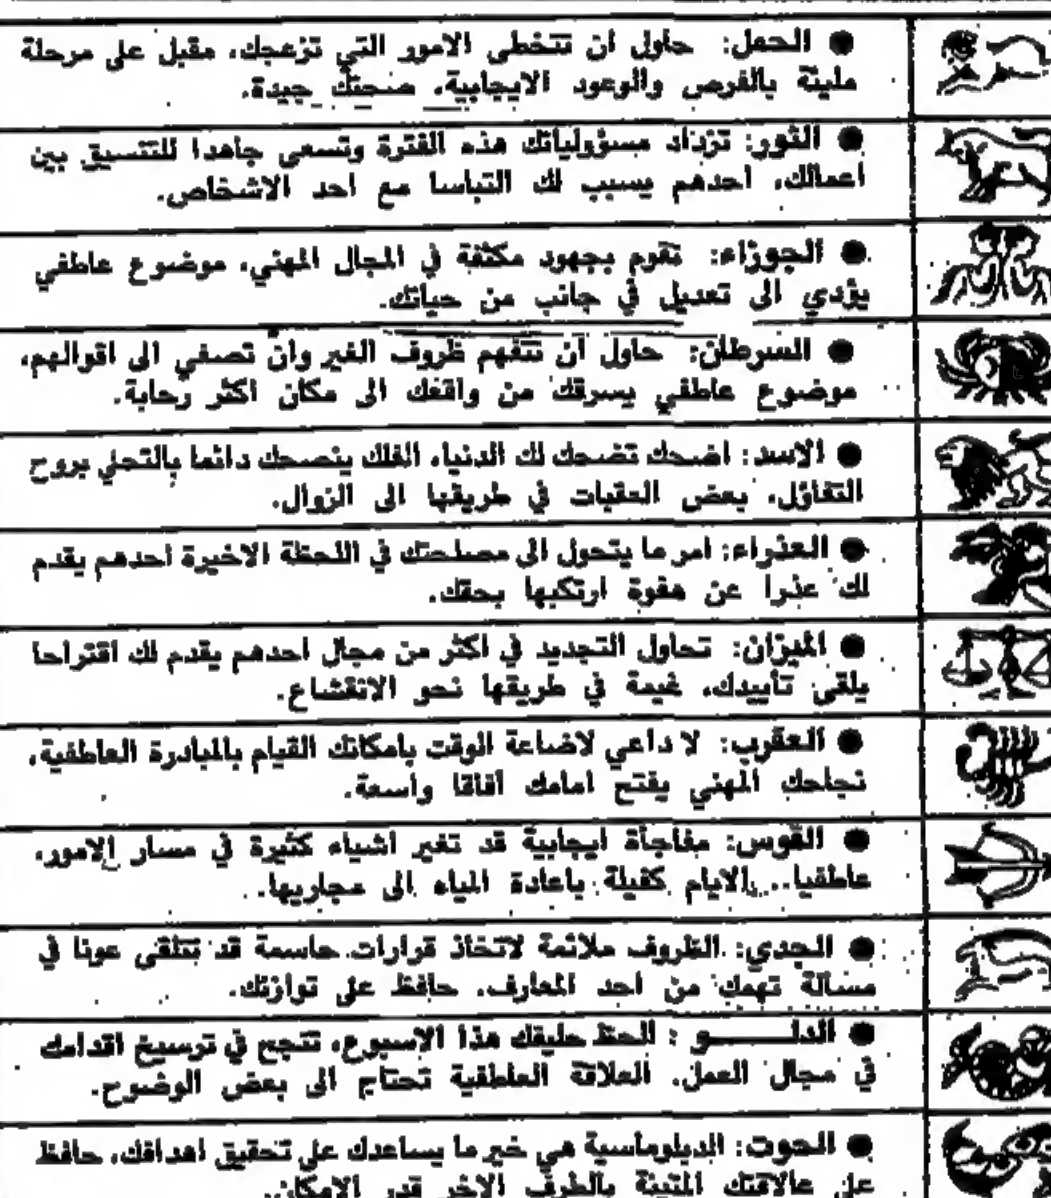 ● الحمل: حاول ان تتخطى الامور التي تزعجك، مقبل على مرحلة
مليئة بالفرص والوعود الايجابية، صحتك جيدة.
● الثور: تزداد مسؤولياتك هذه الفترة وتسعى جاهدا للتنسيق بين
اعمالك، احدهم يسبب لك التباسا مع احد الاشخاص.
● الجوزاء: تقوم بجهود مكثفة في المجال المهني، موضوع عاطفي
يؤدي الى تعديل في جانب من حياتك.
● السرطان: حاول ان تتفهم ظروف الغير وان تصغي الى اقوالهم،
موضوع عاطفي يسرقك من واقعك الى مكان اكثر رحابة.
● الاسد: اضحك تضحك لك الدنيا، الفلك ينصحك دائما بالتحلي بروح
التفاؤل، بعض العقبات في طريقها الى الزوال.
● العذراء: امر ما يتحول الى مصلحتك في اللحظة الاخيرة احدهم يقدم
لك عذرا عن هفوة ارتكبها بحقك.
● الميزان: تحاول التجديد في اكثر من مجال احدهم يقدم لك اقتراحا
يلقى تأييدك، غيمة في طريقها نحو الانقشاع.
● العقرب: لا داعي لاضاعة الوقت بامكانك القيام بالمبادرة العاطفية،
نجاحك المهني يفتح امامك آفاقا واسعة.
● القوس: مفاجأة ايجابية قد تغير اشياء كثيرة في مسار الامور،
عاطفيا.. الايام كفيلة باعادة المياه الى مجاريها.
● الجدي: الظروف ملائمة لاتخاذ قرارات حاسمة قد تتلقى عونا في
مسألة تهمك من احد المعارف، حافظ على توازنك.
● الدلـــــو : الحظ حليفك هذا الاسبوع، تنجح في ترسيخ اقدامك
في مجال العمل. العلاقة العاطفية تحتاج الى بعض الوضوح.
● الحوت: الديلوماسية هي خير ما يساعدك على تحقيق اهدافك، حافظ
على علاقتك المتينة بالطرف الاخر قدر الامكان.